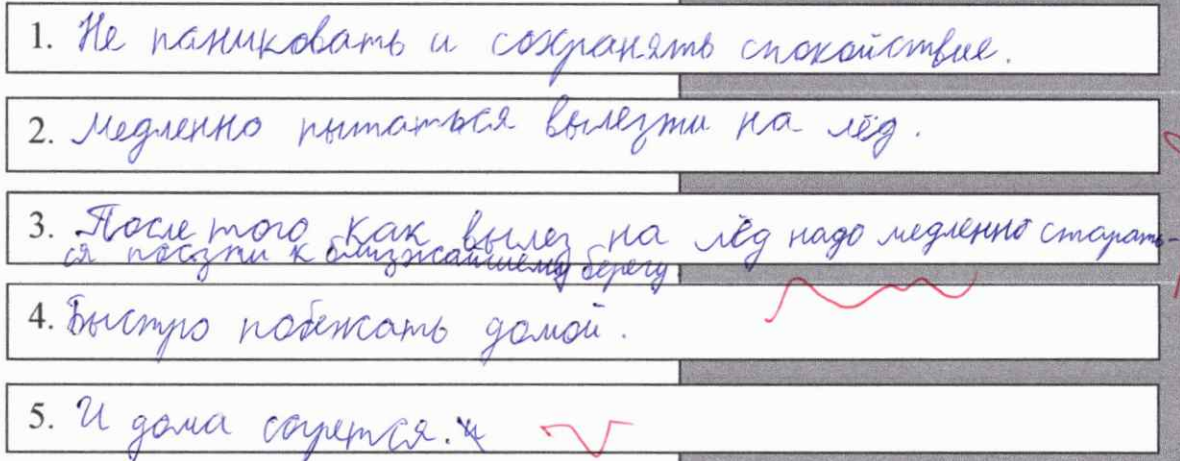 1. Не паниковать и сохранять спокойствие.
2. Медленно пытаться вылезти на лёд.
3. После того как вылез на лёд надо медленно старать-
ся поозти к ближайшему берегу
4. Быстро побежать домой.
5. И дома согретса.